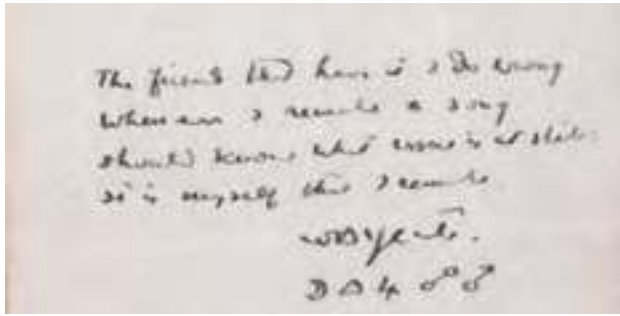 The friends that have it I do wrong
When ever I remake a song
Should know what issue is at stake:
It is myself that I remake.
WB Yeats.